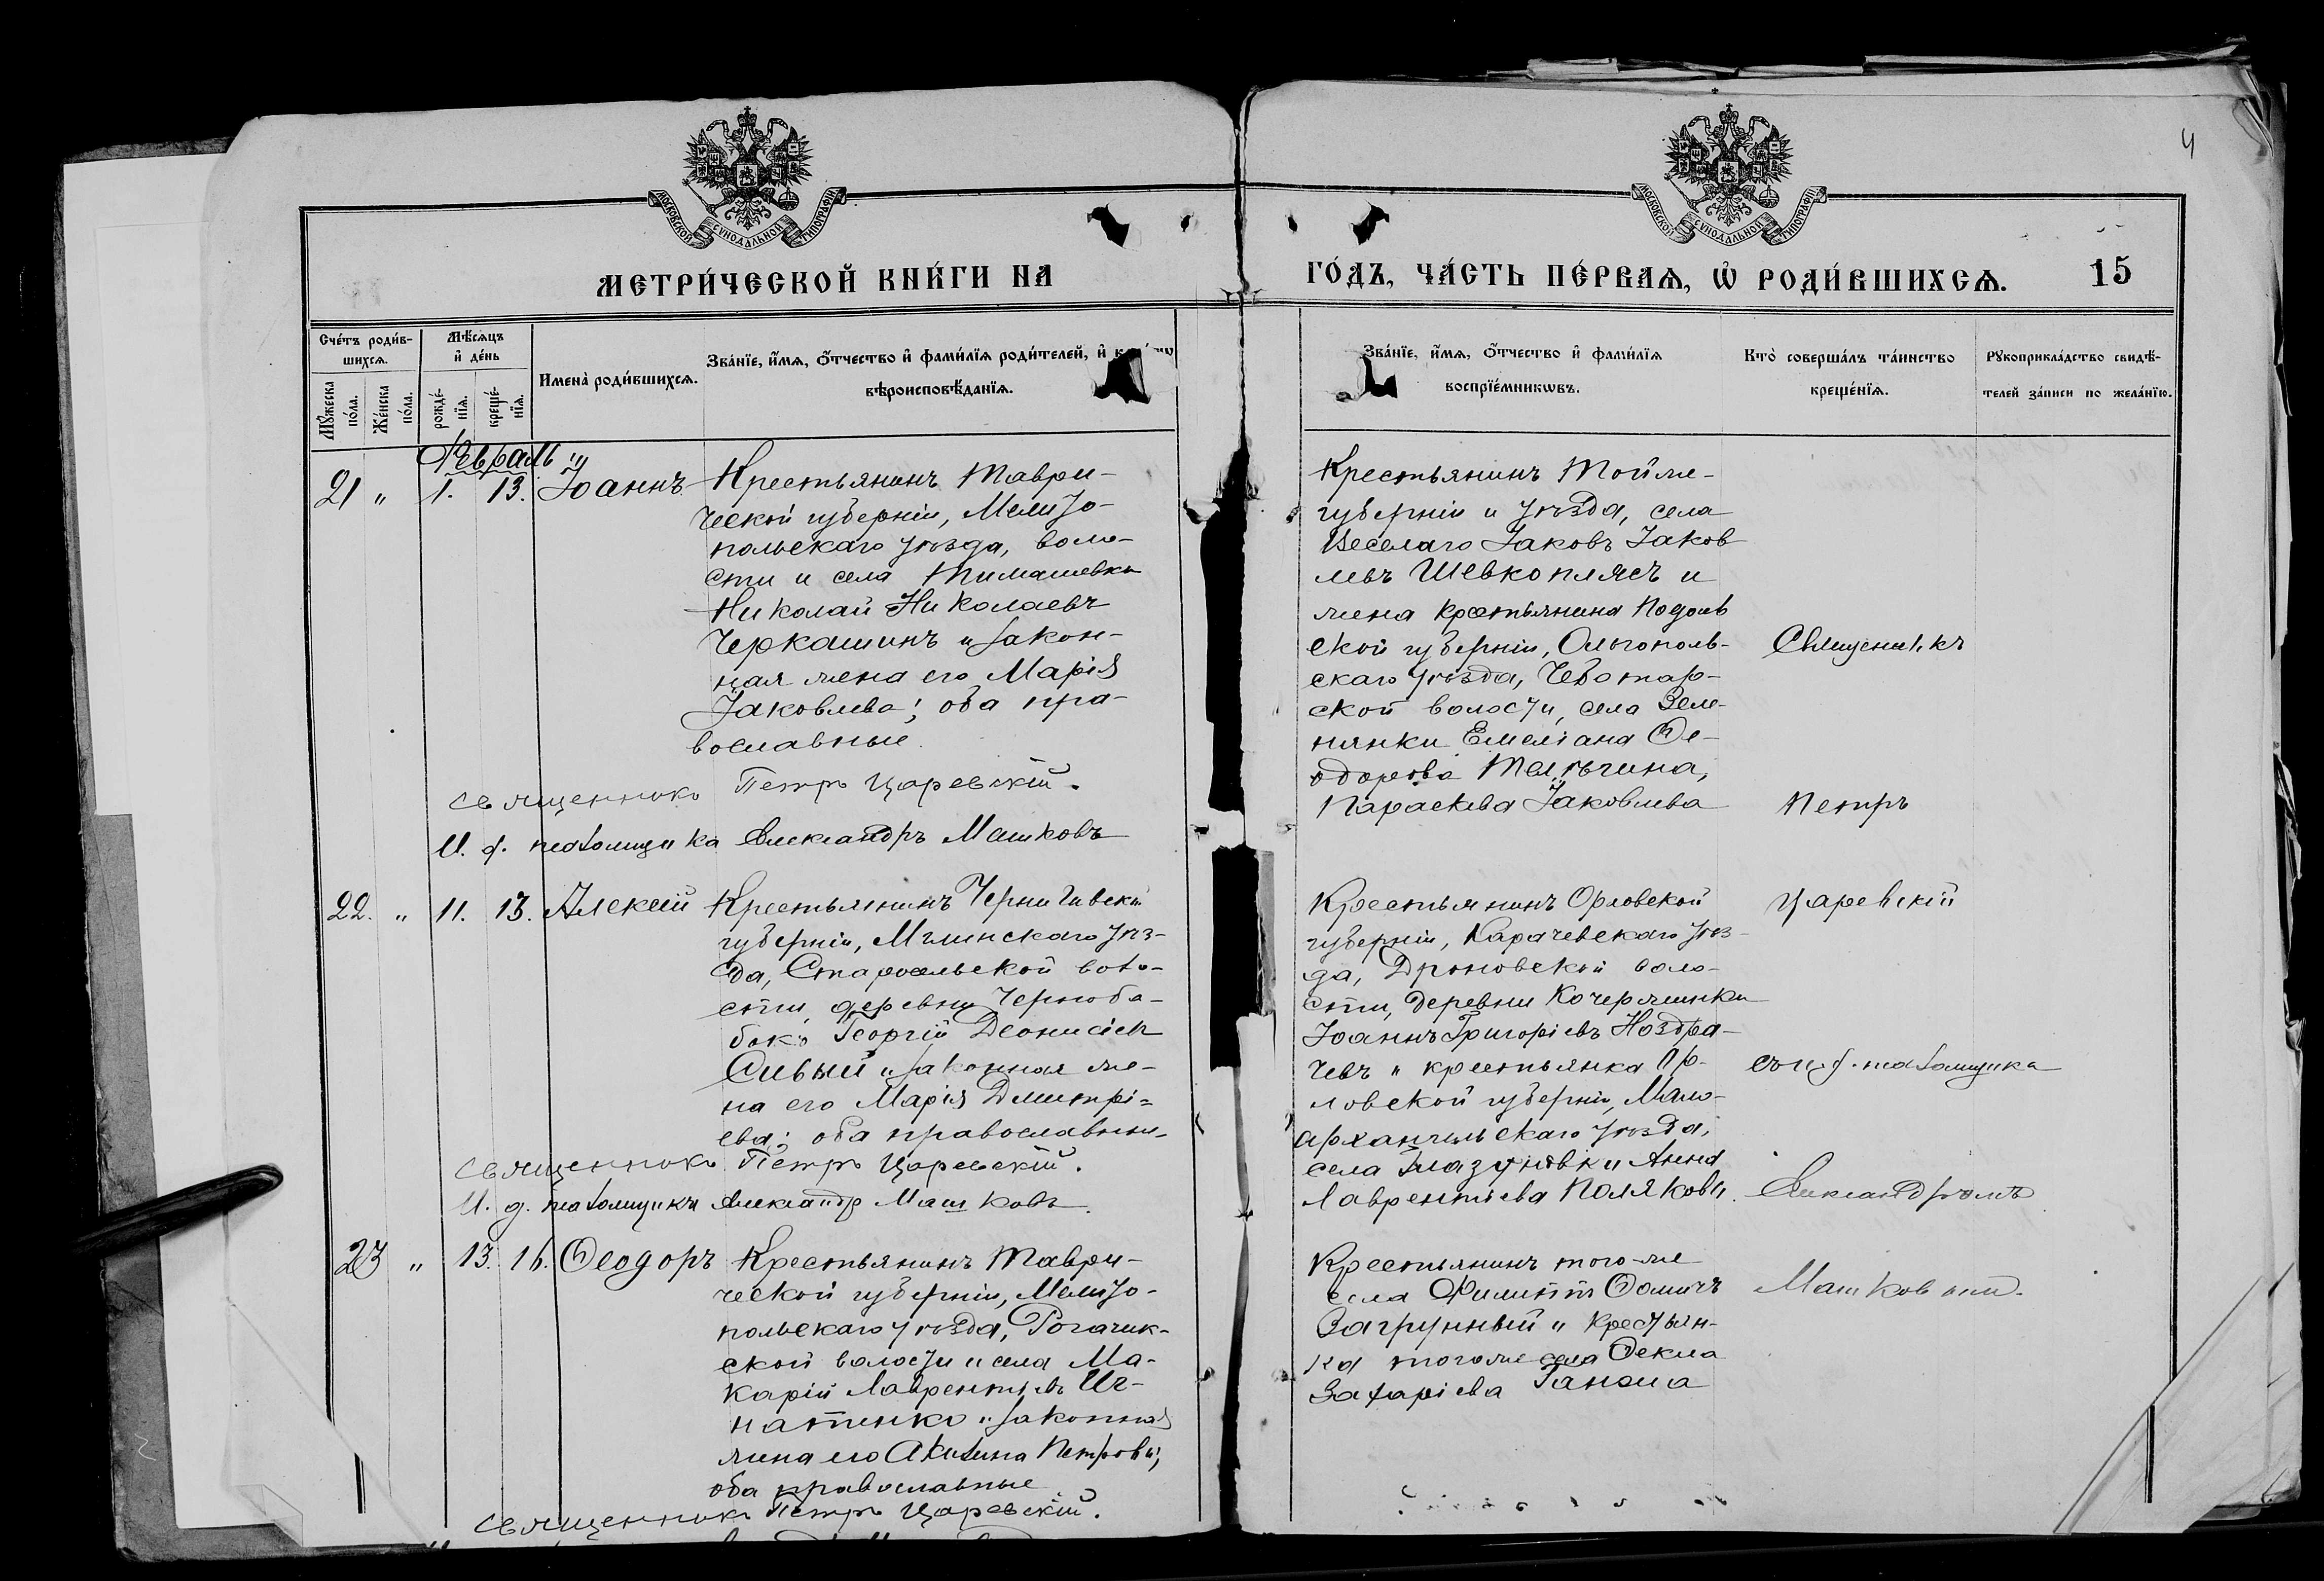 4
МОСКОВСКОЙ СѴНОДАЛЬНОЙ ТИПОГРАФІИ
МОСКОВСКОЙ СѴНОДАЛЬНОЙ ТИПОГРАФІИ
МЕТРИ́ЧЕСКОЙ КНИ́ГИ НА
ГО́ДЪ, ЧА́СТЬ ПЕ́РВАѦ, Ѡ҆ РОДИ́ВШИХСѦ.
15
Сче́тъ роди́в-
шихсѧ.
Мꙋ́жеска
по́ла.
Же́нска
по́ла.
Мѣ́сѧцъ
и҆ де́нь
рожде́-
нїѧ.
креще́-
нїѧ.
Имена̀ роди́вшихсѧ.
Зва́нїе, и҆́мѧ, ѻ҆́тчество и҆ фами́лїѧ роди́телей, и҆
вѣроисповѣ́данїѧ.
Зва́нїе, и҆́мѧ, ѻ҆́тчество и҆ фами́лїѧ
воспрїе́мникѡвъ.
Кто̀ соверша́лъ та́инство
креще́нїѧ.
Рꙋкоприкла́дство свидѣ́-
телей за́писи по жела́нїю.
Февраль
21 " 1. 13. Іоаннъ
Крестьянинъ Таври-
ческой губерніи, Мелито-
польскаго уѣзда, воло-
сти и села Тимашевки
Николай Николаевъ
Черкашинъ и закон-
ная жена его Марія
Іаковлева; оба пра-
вославные
Священникъ Петръ Царевскій.
И. д. псаломщика Александръ Машковъ
Крестьянинъ Той же
губерніи и уѣзда, села
Веселаго Іаковъ Іаков
левъ Шевкоплясъ и
жена крестьянина Подоль
ской губерніи, Ольгополь-
скаго уѣзда, Чеботар-
ской волости, села Зеле-
нянки Емеліана Ѳе-
одорова
Параскева Іаковлева
Священникъ
Петръ
Царевскій
съ и. д. псаломщика
Александромъ
Машковымъ.
22. " 11. 13. Алексій
Крестьянинъ Черниговской
губерніи, Мглинскаго уѣз-
да, Старосельской воло-
сти, деревни Чернобa-
бокъ Георгій Діонисіевъ
Сивый и законная же-
на его Марія Димитрі=
ева; оба православные
Священникъ Петръ Царевскій.
И. д. псаломщика Александр Машковъ.
Крестьянинъ Орловской
губерніи, Карачевскаго уѣз-
да, Дроновской воло-
сти, деревни Кочержинки
Іоаннъ Григоріевъ Ноздра-
чевъ и крестьянка Ор-
ловской губерніи, Мало-
архангельскаго уѣзда,
села Глазуновки Анна
Лаврентіева Полякова.
23 " 13. 16. Ѳеодоръ
Крестьянинъ Таври-
ческой губерніи, Мелито-
польскаго уѣзда, Рогачик-
ской волости и села Ма-
карій Лаврентіевъ Иг-
натенко и законная
жена его Акилина Петрова;
оба православные
Священникъ Петръ Царевскій.
Крестьянинъ того-же
села Филиппъ Ѳомичъ
Загрунный и крестьян-
ка того же села Ѳекла
Захаріева Ганжа